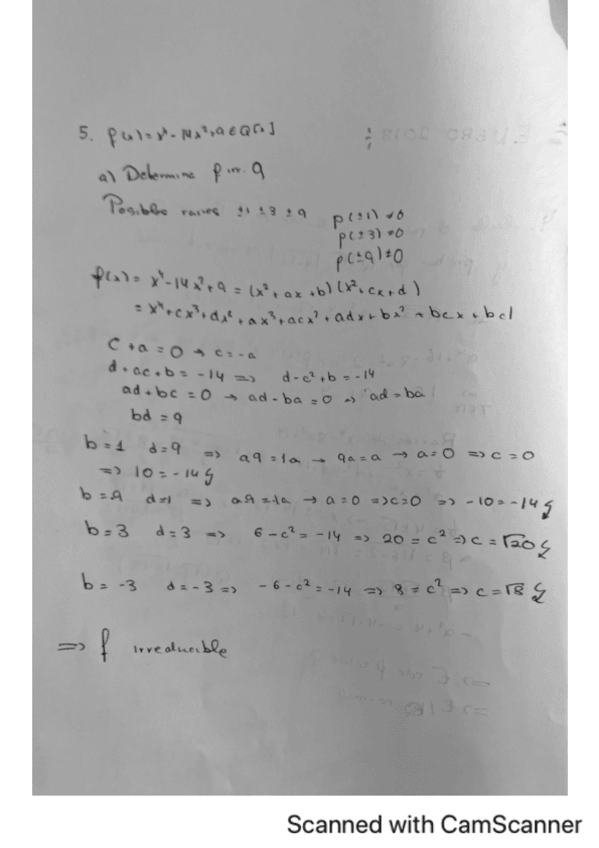 5. p(x) = x⁴ - 14x² + 9 ∈ Q[x]
a) Determine p irr. Q
Possible ±1 ±3 ±9
p(±1) ≠ 0
p(±3) ≠ 0
p(±9) ≠ 0
p(x) = x⁴ - 14x² + 9 = (x² + ax + b)(x² + cx + d)
= x⁴ + cx³ + dx² + ax³ + acx² + adx + bx² + bcx + bd
c + a = 0 → c = -a
d + ac + b = -14 => d - c² + b = -14
ad + bc = 0 → ad - ba = 0 => ad = ba
bd = 9
b = 1 d = 9 => a9 = 1a → 9a = a → a = 0 => c = 0
=> 10 = -14 ↯
b = 9 d = 1 => a9 = 1a → a = 0 => c = 0 => -10 = -14 ↯
b = 3 d = 3 => 6 - c² = -14 => 20 = c² => c = √20 ↯
b = -3 d = -3 => -6 - c² = -14 => 8 = c² => c = √8 ↯
=> f irreducible
Scanned with CamScanner